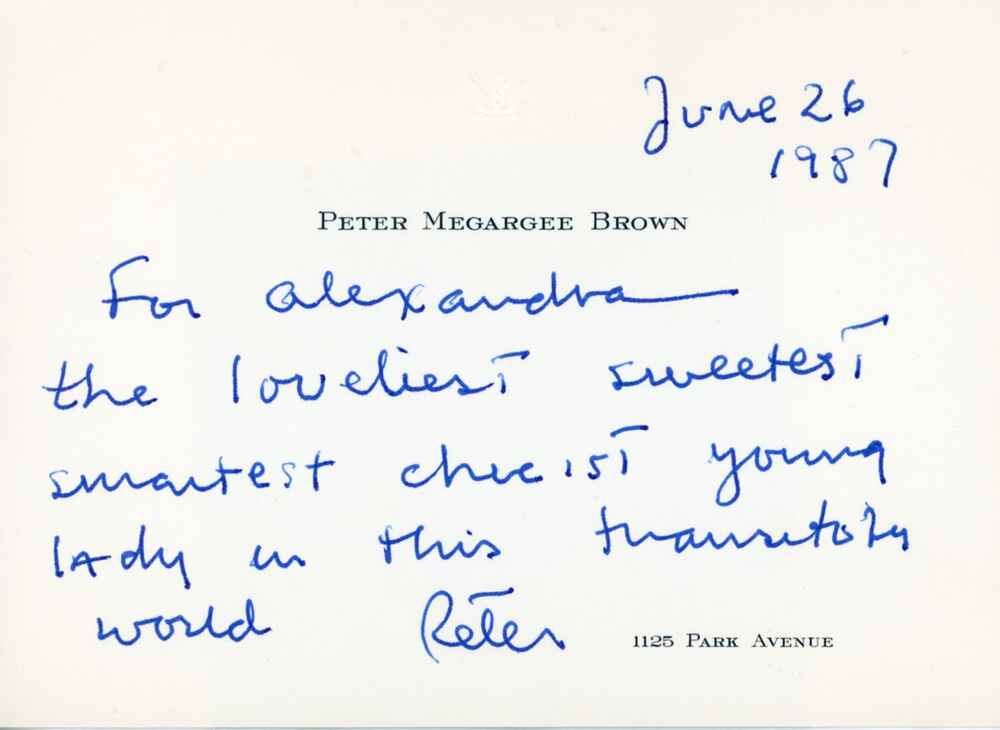 June 26
1987
PETER MEGARGEE BROWN
For alexandra
the loveliest sweetest
smartest chicist young
lady in this transitory
world Peter
1125 PARK AVENUE